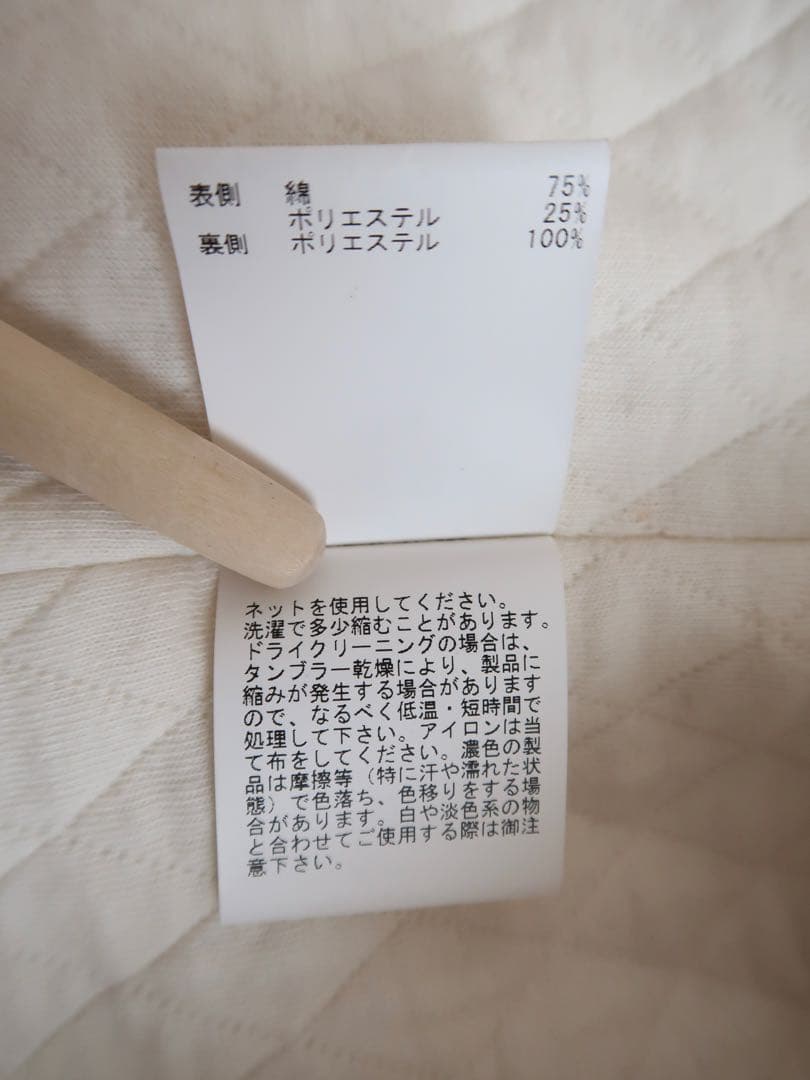 表側 綿 75%
ポリエステル 25%
裏側 ポリエステル 100%
ネットを使用してください。
洗濯で多少縮むことがあります。
ドライクリーニングの場合は、
タンブラー乾燥により、製品に
縮みが発生する場合があります
ので、なるべく低温・短時間で
処理して下さい。アイロンは当
て布をしてください。濃色の製
品は摩擦等(特に汗や濡れた状
態)で色落ち、色移りをする場
合があります。白や淡色系の物
と合わせてご使用する際は御注
意下さい。